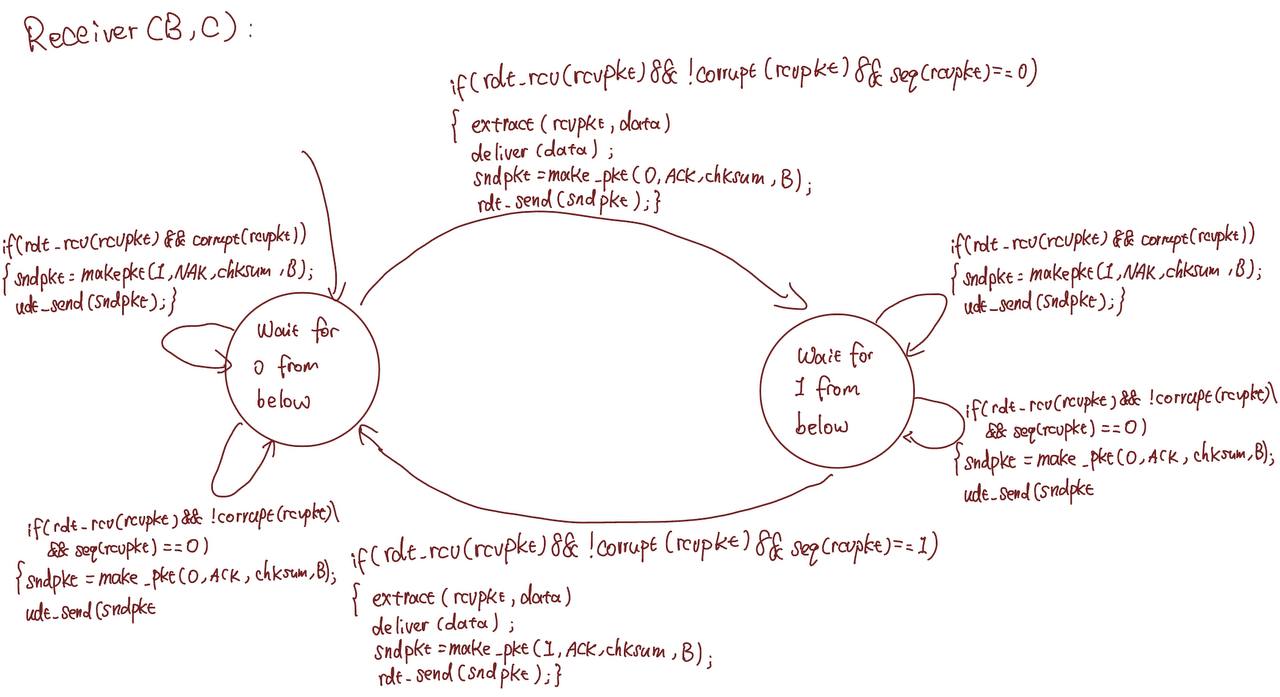 Receiver (B,C) :
if(rdt_rcv(rcvpkt) && !corrupt (rcvpkt) && seq(rcvpkt)==0)
{ extract (rcvpkt, data)
deliver (data) ;
sndpkt = make_pkt(0, ACK, chksum, B);
rdt_send(sndpkt);}
if(rdt_rcv(rcvpkt) && corrupt(rcvpkt))
{ sndpkt = makepkt(1, NAK, chksum, B);
udt_send(sndpkt);}
Wait for
0 from
below
if(rdt_rcv(rcvpkt) && corrupt(rcvpkt))
{ sndpkt = makepkt(1, NAK, chksum, B);
udt_send(sndpkt);}
Wait for
1 from
below
if(rdt_rcv(rcvpkt) && !corrupt(rcvpkt)\
&& seq(rcvpkt) ==0)
{ sndpkt = make_pkt(0, ACK, chksum, B);
udt_send(sndpkt
if(rdt_rcv(rcvpkt) && !corrupt(rcvpkt)\
&& seq(rcvpkt) ==0)
{ sndpkt = make_pkt(0, ACK, chksum, B);
udt_send(sndpkt
if(rdt_rcv(rcvpkt) && !corrupt (rcvpkt) && seq(rcvpkt)==1)
{ extract (rcvpkt, data)
deliver (data) ;
sndpkt = make_pkt(1, ACK, chksum, B);
rdt_send(sndpkt);}